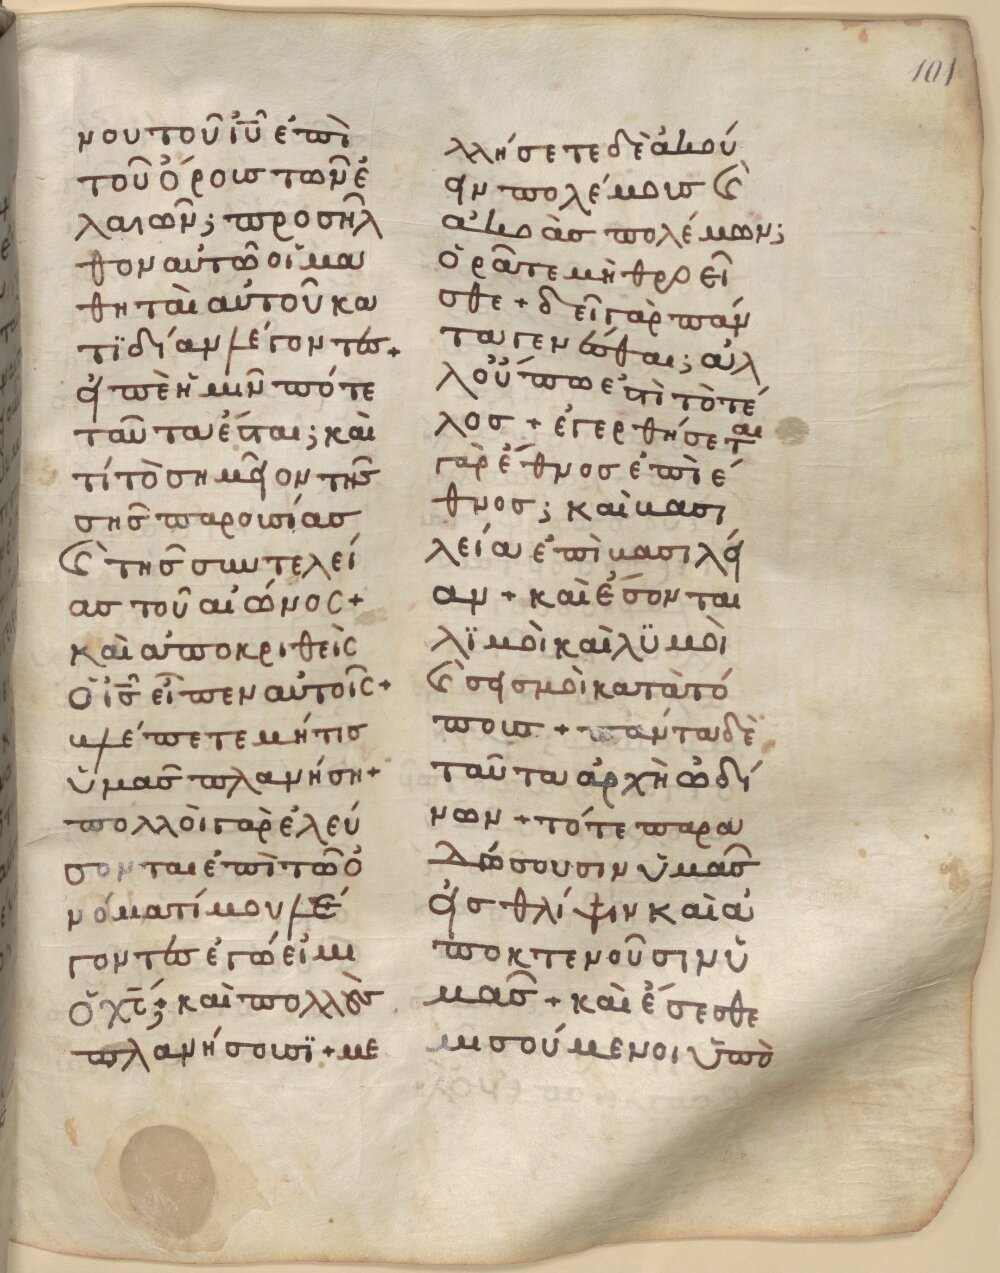 101
μου τοῦ ἰῦ ἐπὶ
τοῦ ὄρουσ τῶν ἐ
λαιῶν; προσῆλ
θον αὐτῶ οἱ μα
θηταὶ αὐτοῦ κα
τϊδίαν λέγοντεσ+
εἰπὲ ἡμῖν πότε
ταῦτα ἔσται; καὶ
τί τὸ σημεῖον τῆσ
σῆσ παρουσίασ
καὶ τῆσ συντελεί
ασ τοῦ αἰῶνοσ+
καὶ ἀποκριθεὶσ
ὁ ἰσ εἶπεν αὐτοῖσ+
βλέπετε μήτισ
ὑμᾶσ πλανήση+
πολλοὶ γὰρ ἐλεύ
σονται ἐπὶ τῶ ὀ
νόματί μου λέ
γοντεσ ἐγώ εἰμι
ὁ χσ; καὶ πολλοὺσ
πλανήσουσϊ+με
λλήσετε δὲ ἀκού
ειν πολέμουσ καὶ
ἀκοὰσ πολέμων;
ὁρᾶτε μὴ θροεῖ
σθε + δεῖ γὰρ πάν
τα γενέσθαι; ἀλ
λ οὔπω ἐστὶ τὸ τέ
λοσ + ἐγερθήσεται
γὰρ ἔθνοσ ἐπὶ ἔ
θνοσ; καὶ βασι
λεία ἐπὶ βασιλεί
αν + καὶ ἔσονται
λϊμοὶ καὶ λϋμοὶ
καὶ σεισμοὶ κατὰ τό
πουσ + πάντα δὲ
ταῦτα ἀρχὴ ὠδί
νων + τότε παρα
δώσουσιν ὑμᾶσ
εἰσ θλίψιν καὶ ἀ
ποκτενοῦσιν ὑ
μᾶσ + καὶ ἔσεσθε
μισούμενοι ὑπὸ